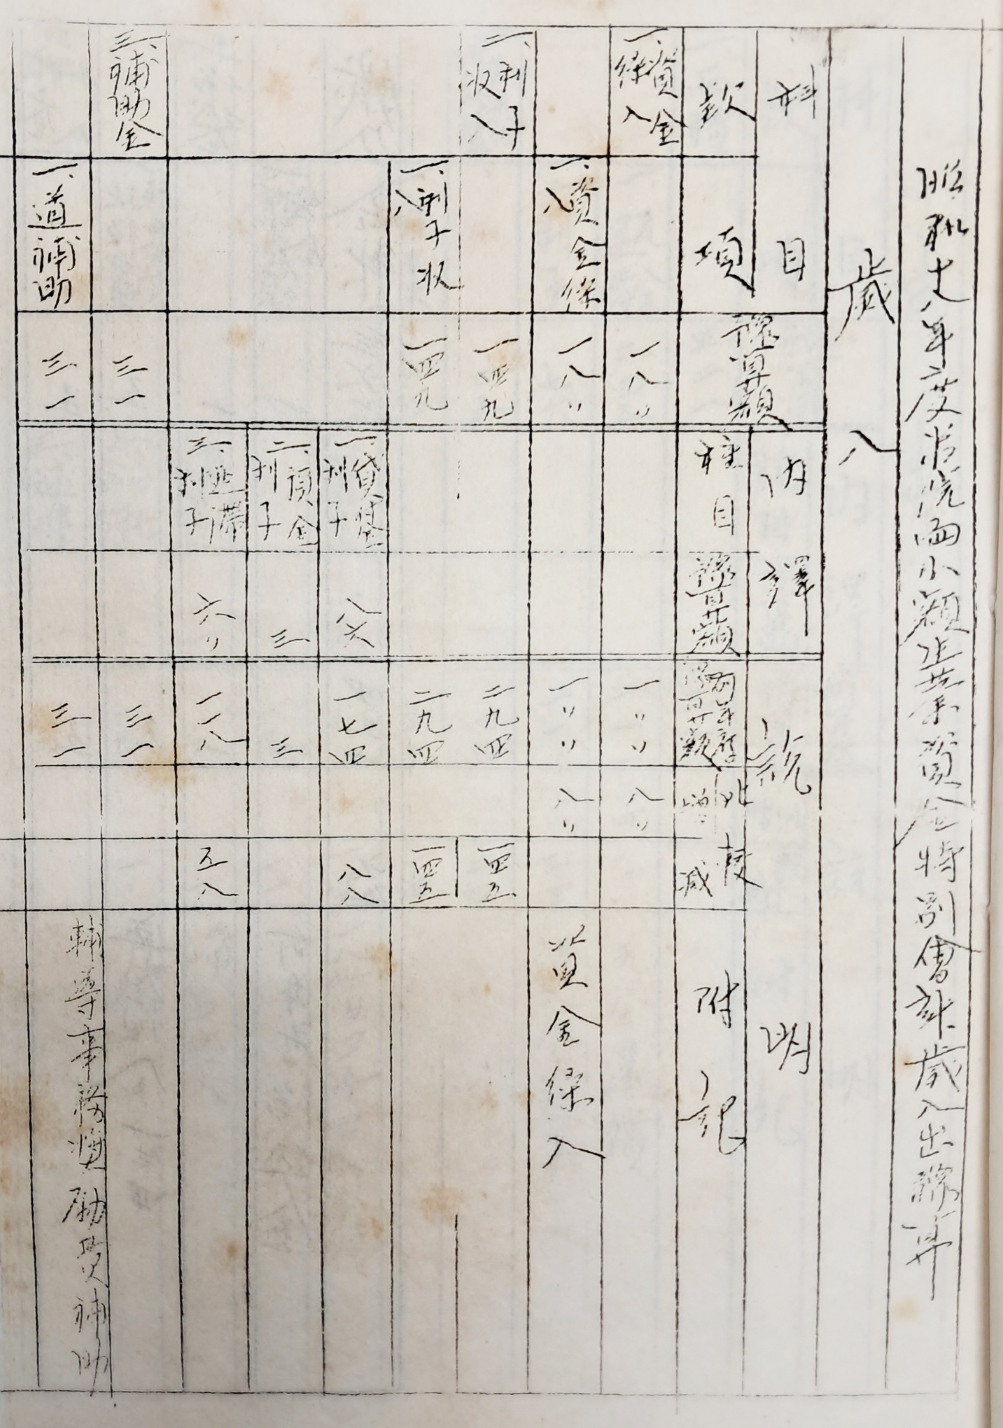 昭和十八年度 小額生業資金特別會計歲入出豫算
歲入
科目
內譯
說明
款
項
豫算額
種目
豫算額
前年度豫算額
比較
增
減
附記
一、資金繰入
一八〃
一〃〃
八〃
一、資金繰入
一八〃
一〃〃
八〃
資金繰入
二、利子收入
一四九
二九四
一四五
一、利子收入
一四九
二九四
一四五
一、貸付金利子
八六
一七四
八八
二、預金利子
三
三
三、延滯利子
六〃
一一八
五八
三、補助金
三一
三一
一、道補助
三一
三一
輔導事務獎勵費補助